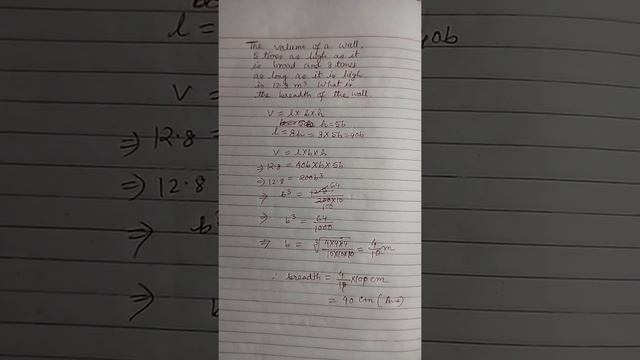 The volume of a wall,
5 times as high as it
is broad and 8 times
as long as it is high
is 12.8 m³. What is
the breadth of the wall
V = l×b×h
h=5b
l = 8h = 8×5b=40b
V = l×b×h
⇒ 12.8 = 40b×b×5b
⇒ 12.8 = 200b³
⇒ b³ = 128 64 / 200×10 100
⇒ b³ = 64/1000
⇒ b = ∛(4×4×4 / 10×10×10) = 4/10 m
∴ breadth = 4/10 ×100 cm
= 40 cm (Ans)
l =
40b
V =
⇒ 12.8 =
⇒ 12.8
⇒ b³
⇒